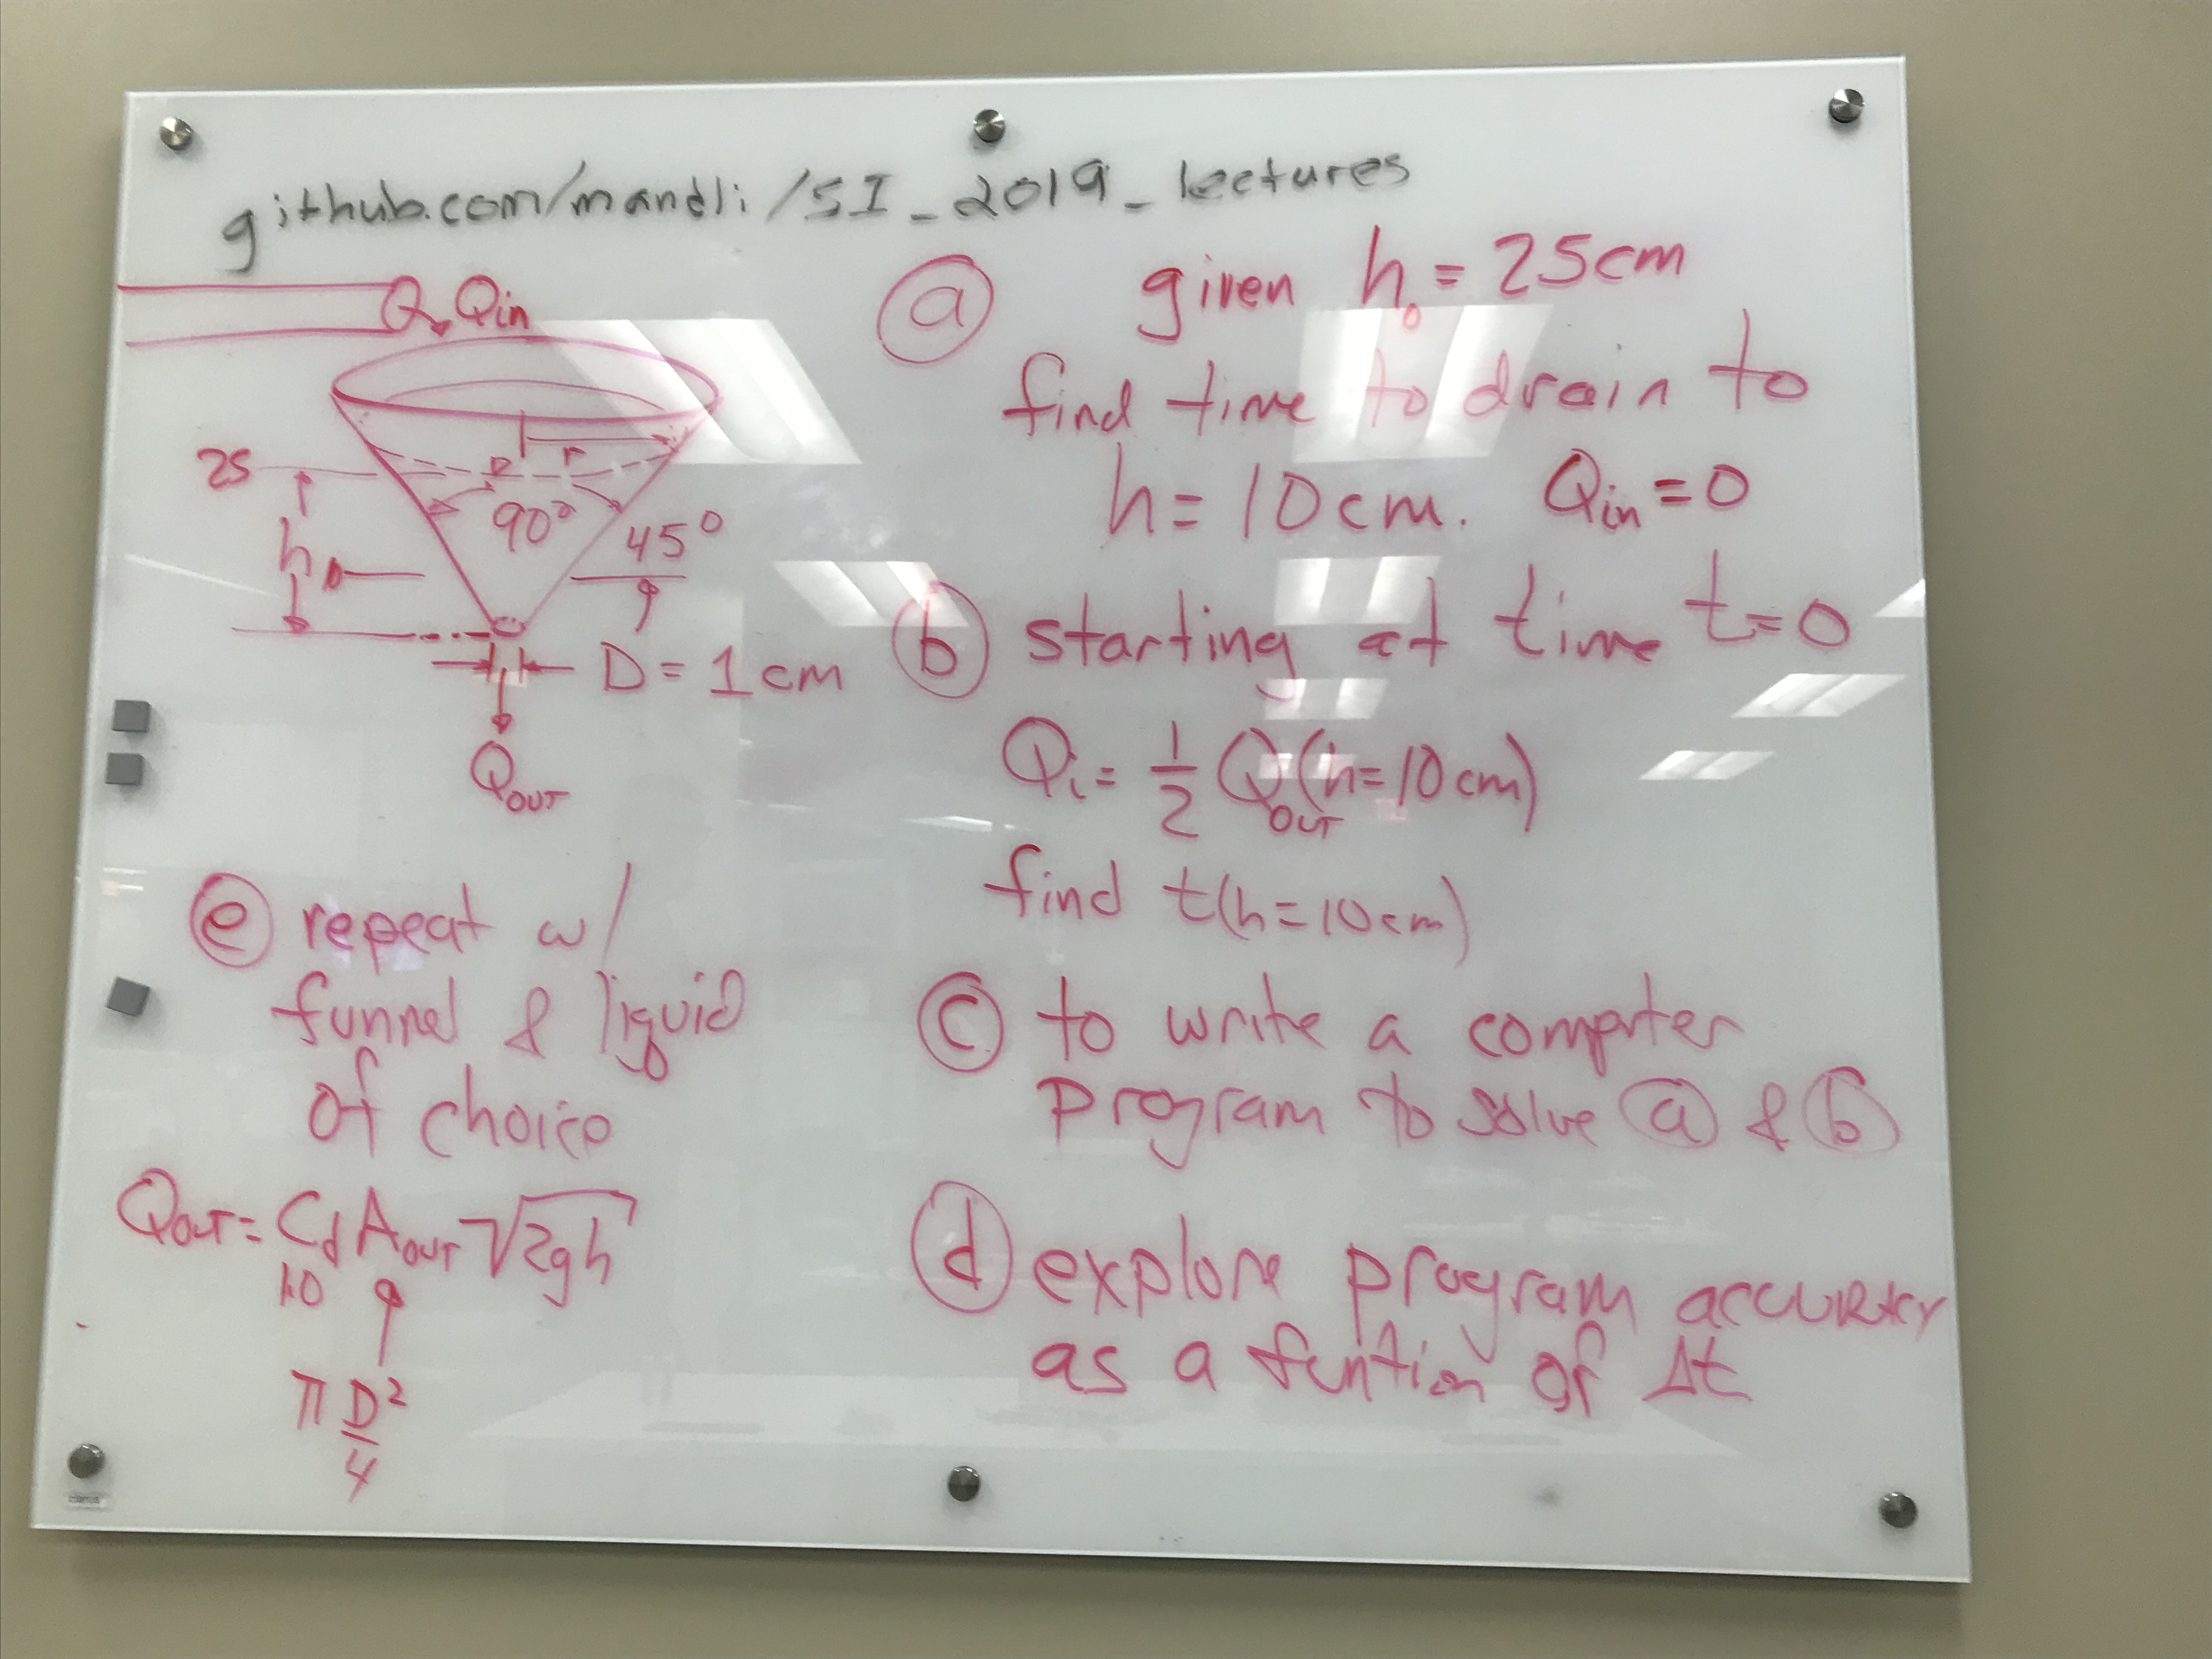 github.com/mandli/SI_2019_lectures
Q Qin
25
r
90°
45°
h
D = 1cm
QOUT
ⓐ given h₀ = 25cm
find time to drain to
h = 10cm. Qin = 0
ⓑ starting at time t=0
Qi = 1/2 QOUT(h=10cm)
find t(h=10cm)
ⓒ to write a computer
program to solve ⓐ & ⓑ
ⓓ explore program accuracy
as a funtion of Δt
ⓔ repeat w/
funnel & liquid
of choice
QOUT = Cd AOUT √2gh
1.0
π D²/4